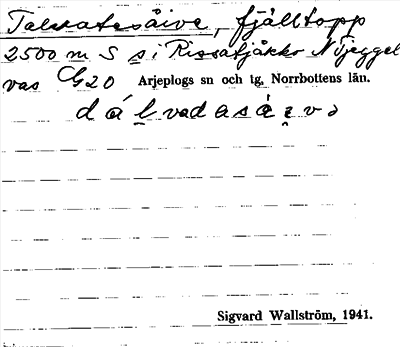 Talvatesåive, fjälltopp
2500 m S s i Rissatjåkko N Tjeggel
vas G20 Arjeplogs sn och tg, Norrbottens län.
dálvadasái̯və
Sigvard Wallström, 1941.